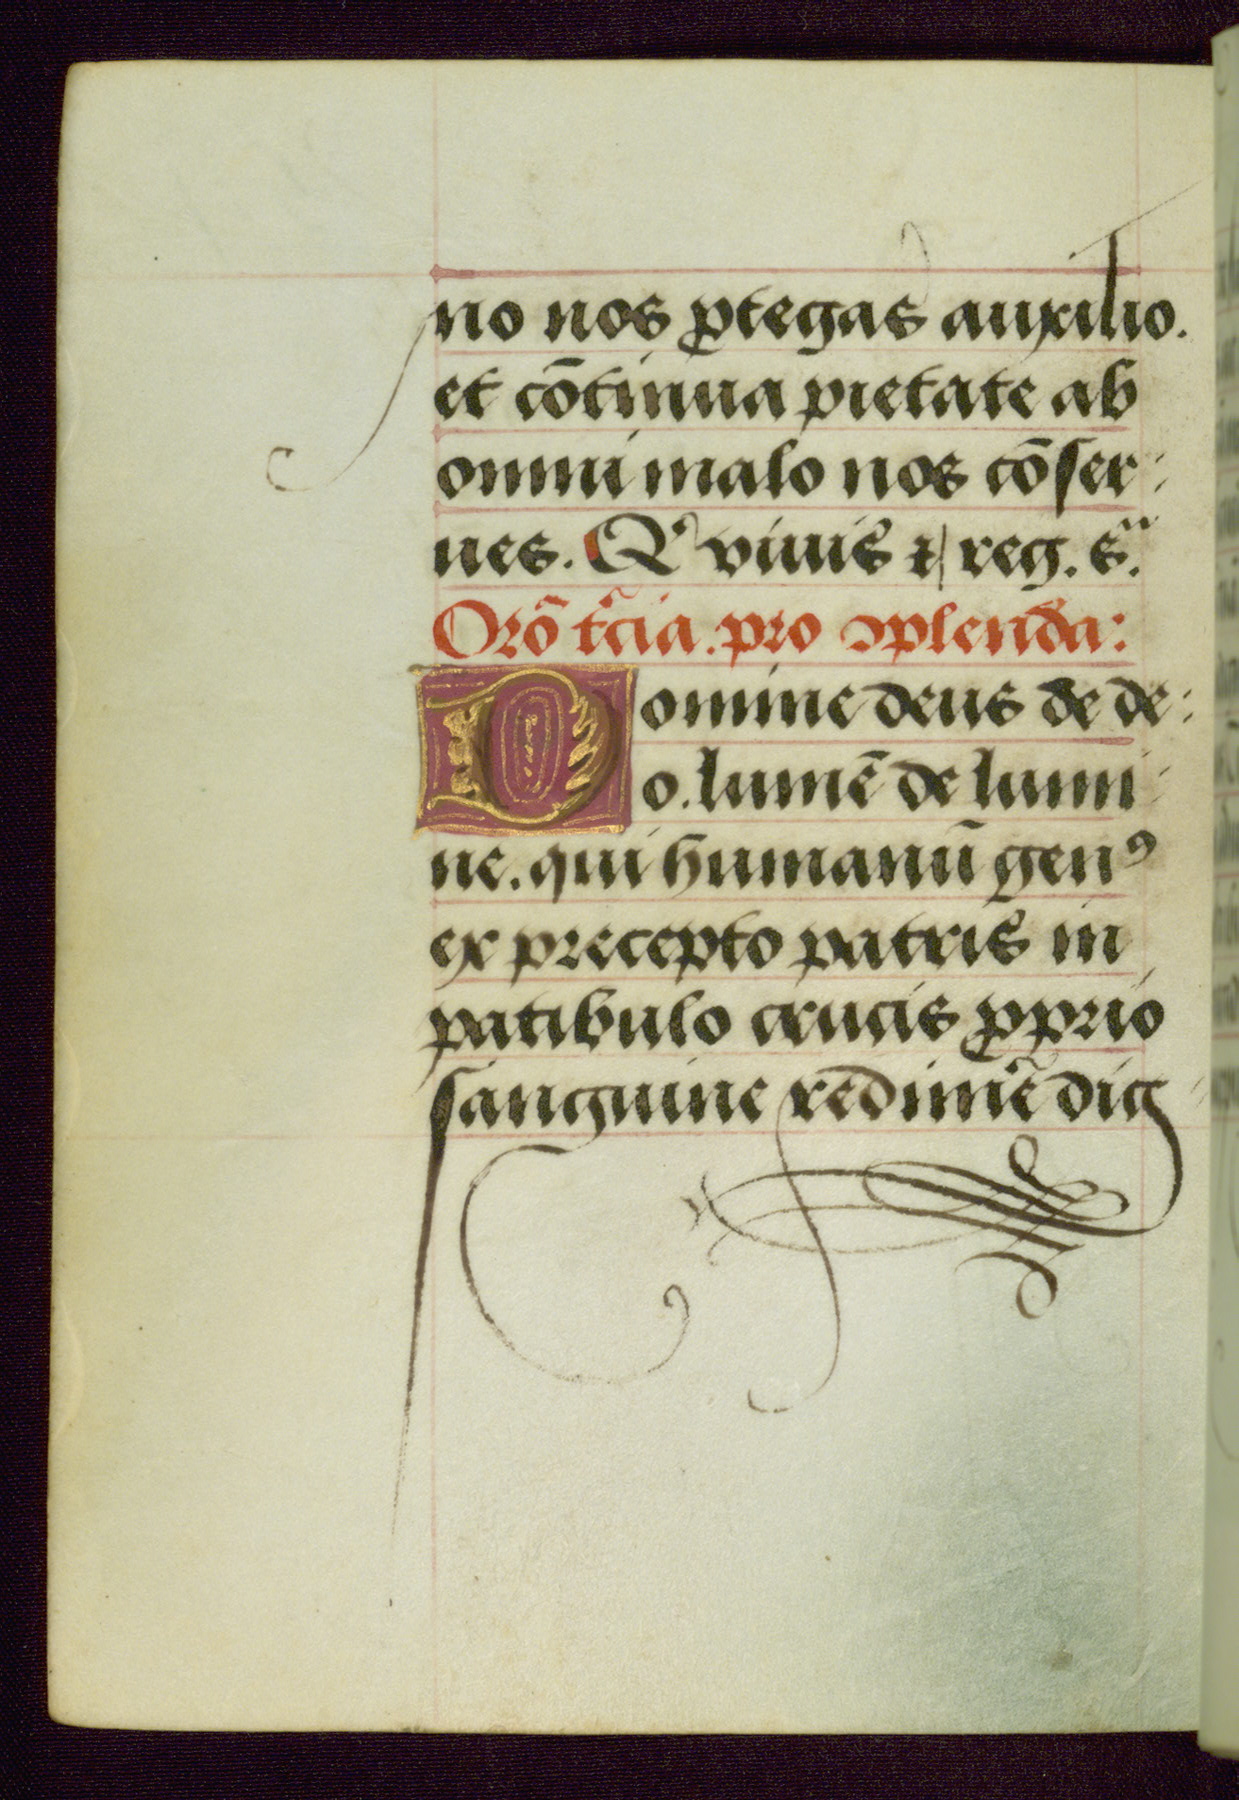 no nos ꝓtegas auxilio.
et cōtinua pietate ab
omni malo nos cōser-
ues. Qͥ viuis ⁊ reg. s.
Orō tͨcia. pro ꝯplenda:
Domine deus de de-
o. lumē de lumi-
ne. qui humanū genꝰ
ex precepto patris in
patibulo crucis ꝓprio
sanguine redimē̉ dig-